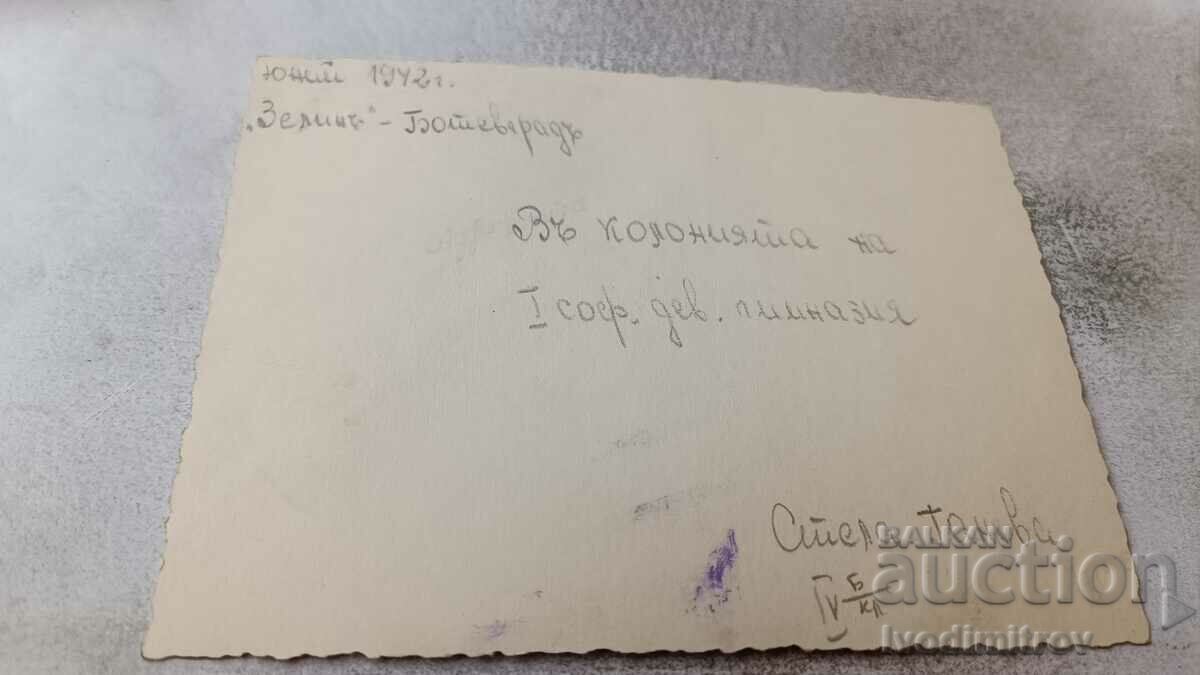 юни 1942 г.
"Зелинъ" - Ботевградъ
Въ колонията на
I соф. дев. гимназия
Стела
IV Б кл
BALKAN
auction
Ivodimitrov